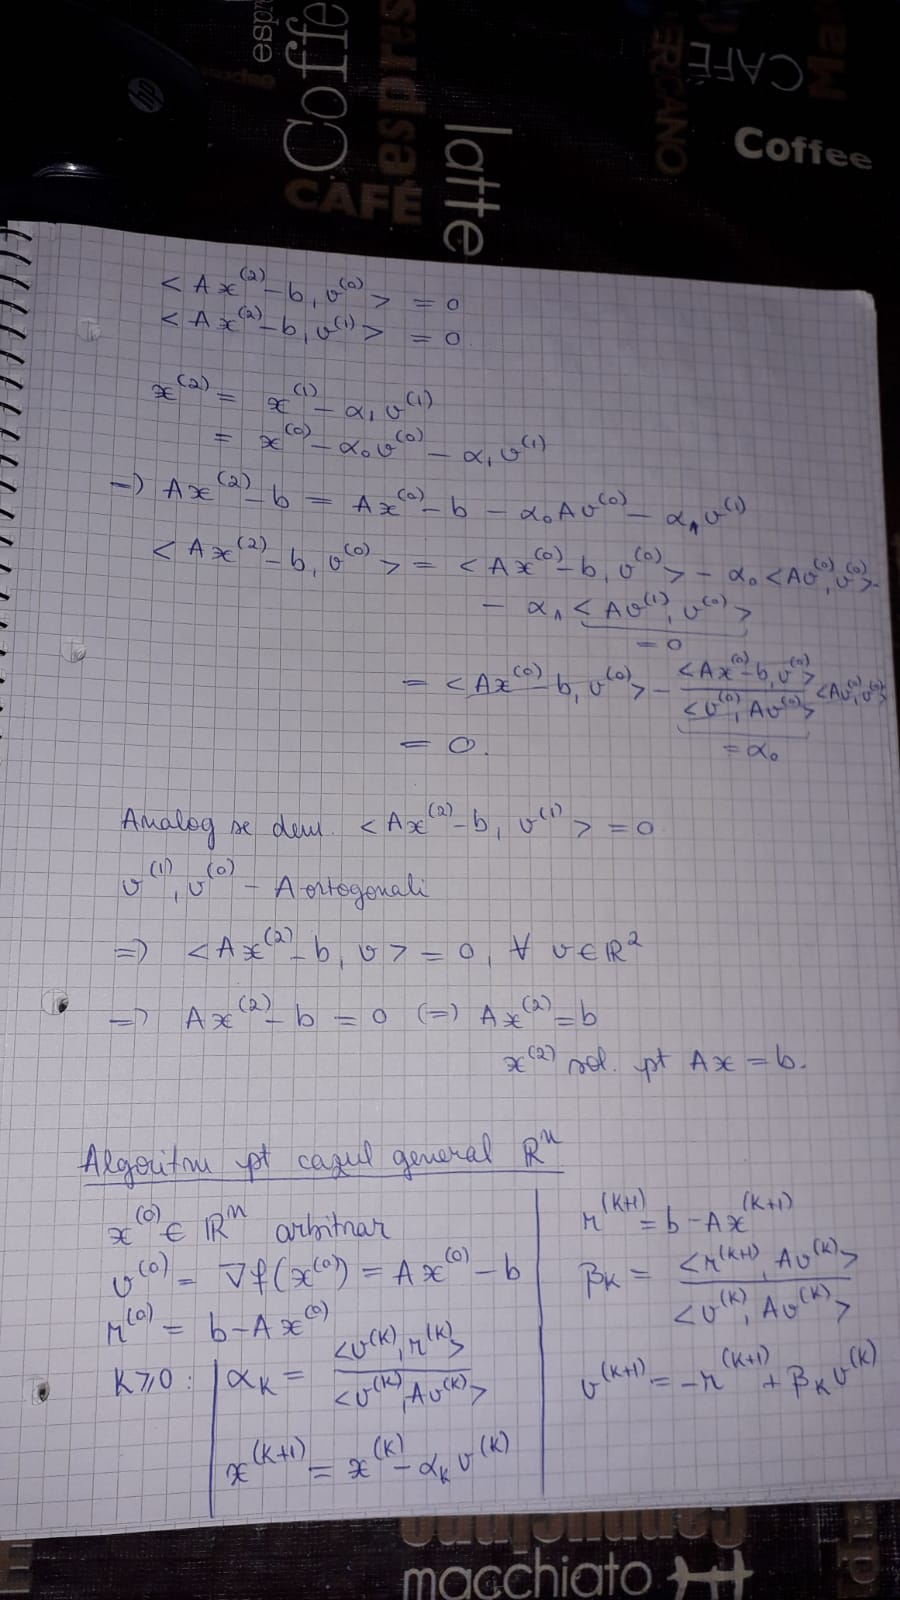 espr
Coffe
espres
CAFÉ
latte
ERCANO
CAFÉ
Ma
Coffee
hp
< Ax^(2) - b, v^(0) > = 0
< Ax^(2) - b, v^(1) > = 0
x^(2) = x^(1) - α₁ v^(1)
= x^(0) - α₀ v^(0) - α₁ v^(1)
=> Ax^(2) - b = Ax^(0) - b - α₀ Av^(0) - α₁ v^(1)
< Ax^(2) - b, v^(0) > = < Ax^(0) - b, v^(0) > - α₀ < Av^(0), v^(0) > -
- α₁ < Av^(1), v^(0) >
= 0
= < Ax^(0) - b, v^(0) > - < Ax^(0) - b, v^(0) > / < v^(0), Av^(0) > < Av^(0), v^(0) >
= 0. = α₀
Analog se dem. < Ax^(2) - b, v^(1) > = 0
v^(1), v^(0) - A ortogonali
=> < Ax^(2) - b, v > = 0, ∀ v ∈ ℝ²
=> Ax^(2) - b = 0 (=) Ax^(2) = b
x^(2) sol. pt Ax = b.
Algoritm pt cazul general ℝⁿ
x^(0) ∈ ℝⁿ arbitrar
v^(0) = ∇f(x^(0)) = Ax^(0) - b
r^(0) = b - Ax^(0)
k ≥ 0 : α_k = < v^(k), r^(k) > / < v^(k), Av^(k) >
x^(k+1) = x^(k) - α_k v^(k)
r^(k+1) = b - Ax^(k+1)
β_k = < r^(k+1), Av^(k) > / < v^(k), Av^(k) >
v^(k+1) = -r^(k+1) + β_k v^(k)
macchiato